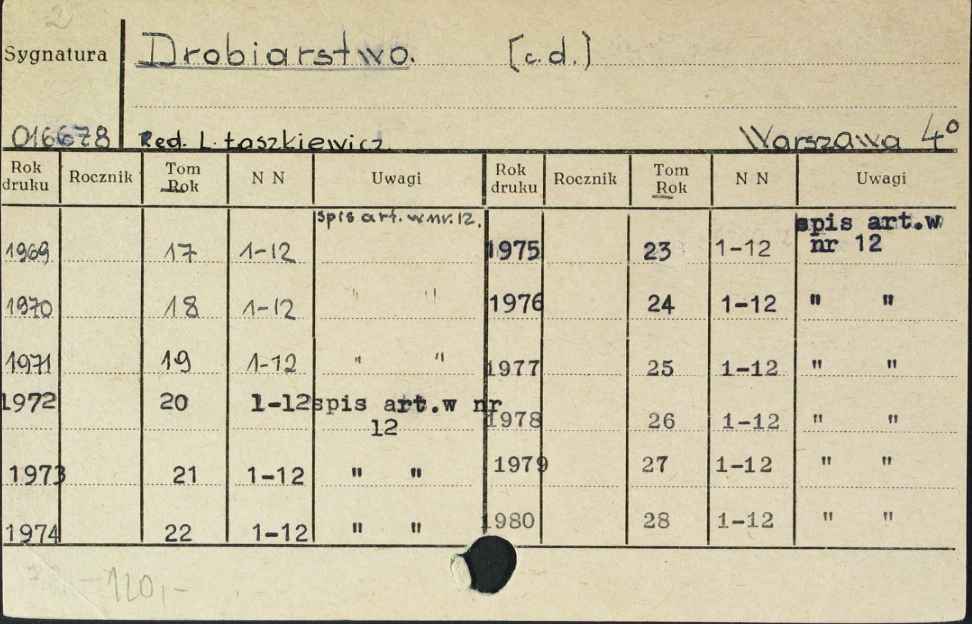 2
Sygnatura Drobiarstwo. [c.d.]
016678 Red. L. Łaszkiewicz Warszawa 4°
Rok druku Rocznik Tom Rok N N Uwagi Rok druku Rocznik Tom Rok N N Uwagi
1969 17 1-12 spis art. w nr. 12. 1975 23 1-12 spis art.w nr 12
1970 18 1-12 " " 1976 24 1-12 " "
1971 19 1-12 " " 1977 25 1-12 " "
1972 20 1-12 spis art.w nr 12 1978 26 1-12 " "
1973 21 1-12 " " 1979 27 1-12 " "
1974 22 1-12 " " 1980 28 1-12 " "
120,-